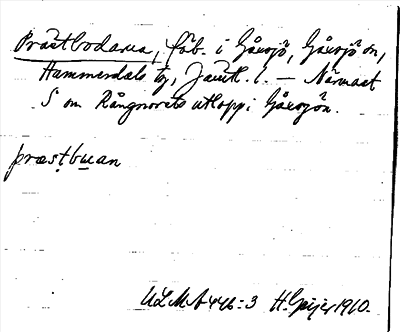 Prästbodarna, fäb. i Gåxsjö, Gåxsjö sn,
Hammerdals tg, Jämtl. l. — Närmast
S om Rångnorets utlopp i Gåxsjön.
præsṭbu̲an
ULMA 446:3 H. Geijer 1910.